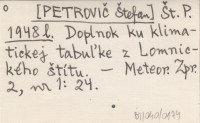 [PETROVIČ Štefan] Št. P.
1948 l. Doplnok ku klima-
tickej tabuľke z Lomnic-
kého štítu. — Meteor. Zpr.
2, nr 1: 24.